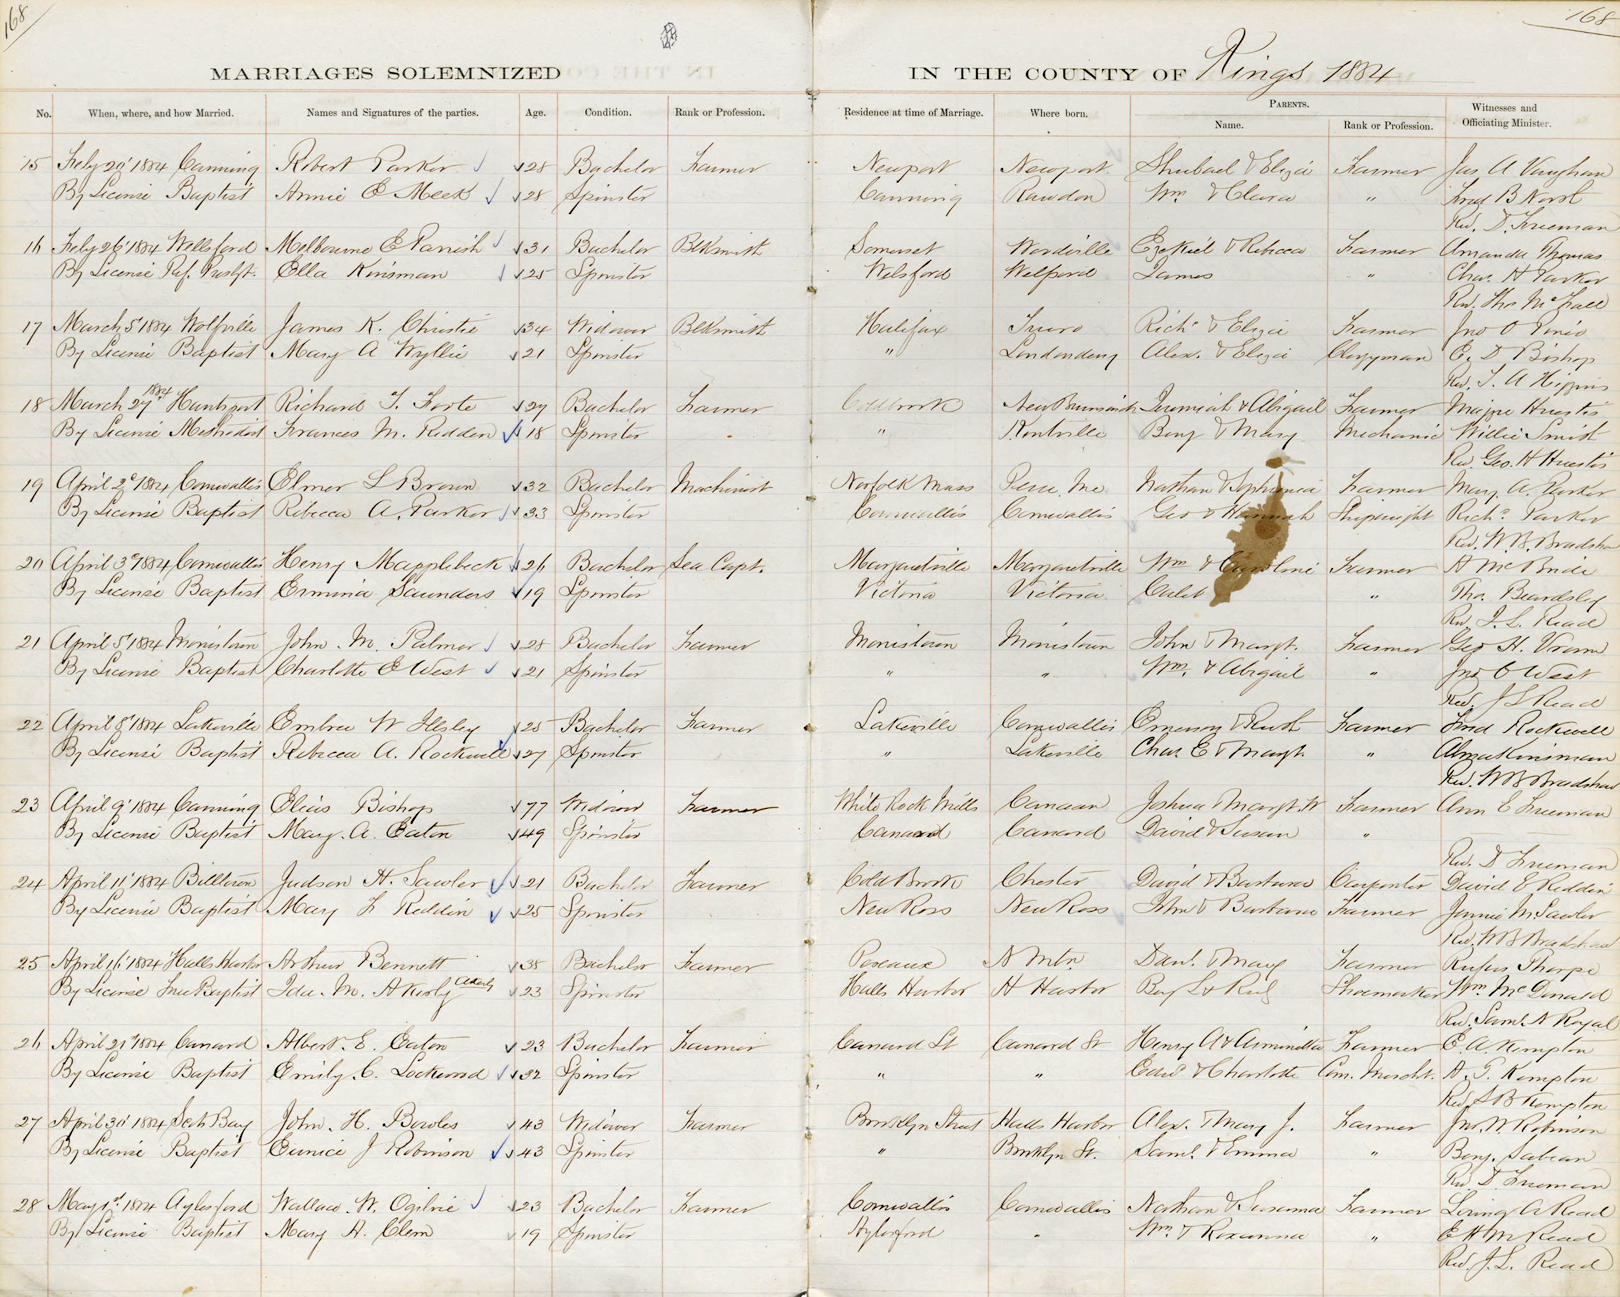 168
168
MARRIAGES SOLEMNIZED
IN THE COUNTY OF Kings 1884
No. When, where, and how Married. Names and Signatures of the parties. Age. Condition. Rank or Profession. Residence at time of Marriage. Where born. PARENTS. Witnesses and
Name. Rank or Profession. Officiating Minister.
15 Feby 20' 1884 Canning Robert Parker 28 Bachelor Farmer Newport Newport Shubael & Eliza Farmer Jas A Vaughan
By License Baptist Annie E Meek 28 Spinster Canning Rawdon Wm & Clara " B North
Rev. D. Freeman
16 Feby 26' 1884 Wellsford Melbourne E Parrish 31 Bachelor BlkSmith Somerset Woodville Ezekiel & Rebecca Farmer Amanda Thomas
By License Ref. Presbt. Ella Kinsman 25 Spinster Welsford Welsford James " Chas. H Parker
Rev. Tho McFall
17 March 5' 1884 Wolfville James K. Christie 34 Widower BlkSmith Halifax Truro Richd & Eliza Farmer Jno O Pineo
By License Baptist Mary A Wyllie 21 Spinster " Londonderry Alex. & Eliza Clergyman E. D Bishop
Rev. T. A Higgins
18 March 27' 1884 Hantsport Richard T. Foote 27 Bachelor Farmer Coldbrook New Brunswick Jeremiah & Abigail Farmer Huestis
By License Methodist Frances M. Redden 18 Spinster " Kentville Benj & Mary Mechanic Willie Smith
Rev. Geo. H Huestis
19 April 2d 1884 Cornwallis Elmer L Brown 32 Bachelor Machinist Norfolk Mass Peru, Me Nathan & Sophronia Farmer Mary A. Parker
By License Baptist Rebecca A. Parker 23 Spinster Cornwallis Cornwallis Geo & Hannah Shipwright Richd Parker
Rev. W. B. Bradshaw
20 April 3d 1884 Cornwallis Henry Mapplebeck 26 Bachelor Sea Capt. Margaretville Margaretville Wm & Caroline Farmer A McBride
By License Baptist Erminia Saunders 19 Spinster Victoria Victoria Caleb " Tho. Beardsley
Rev. J. L. Read
21 April 5' 1884 Morristown John. M. Palmer 28 Bachelor Farmer Morristown Morristown John & Margt. Farmer Geo H. Vroom
By License Baptist Charlotte E West 21 Spinster " " Wm. & Abigail " Jno O West
Rev. J L Read
22 April 8' 1884 Lakeville Embree W Ilsley 25 Bachelor Farmer Lakeville Cornwallis Emerson & Ruth Farmer Fred Rockwell
By License Baptist Rebecca A. Rockwell 27 Spinster " Lakeville Chas. E & Margt. " Alma Kinsman
Rev. W B Bradshaw
23 April 9' 1884 Canning Elias Bishop 77 Widower Farmer White Rock Mills Canaan Joshua & Margt. W Farmer Ann E Freeman
By License Baptist Mary. A. Eaton 49 Spinster Canard Canard David & Susan "
Rev. D Freeman
24 April 11' 1884 Billtown Judson H. Sawler 21 Bachelor Farmer Cold Brook Chester David & Barbara Carpenter David E Redden
By License Baptist Mary L Reddin 25 Spinster New Ross New Ross John & Barbara Farmer Jennie M. Sawler
Rev. W B Bradshaw
25 April 16' 1884 Halls Harbor Arthur Bennett 38 Bachelor Farmer Pereaux N Mtn. Danl. & Mary Farmer Rufus Thorpe
By License Free Baptist Ida. M. Akerly Akerly 23 Spinster Halls Harbor H Harbor Shoemaker Wm McDonald
Rev. Saml. N Royal
26 April 21st 1884 Canard Albert. E. Eaton 23 Bachelor Farmer Canard St Canard St Henry A & Arminilla Farmer E. A. Kempton
By License Baptist Emily. C. Lockwood 32 Spinster " " Edwd & Charlotte Com. Mercht. A. T. Kempton
Rev. S B Kempton
27 April 30' 1884 Scots Bay John. H. Bowles 43 Widower Farmer Brooklyn Street Halls Harbor Alex. & Mary J. Farmer Jno. W. Robinson
By License Baptist Eunice J Robinson 43 Spinster " Brooklyn St. Saml. & Emma " Benj. Sabean
Rev D. Freeman
28 May 1st. 1884 Aylesford Wallace. W. Ogilvie 23 Bachelor Farmer Cornwallis Cornwallis Nathan & Susanna Farmer Loring A Read
By License Baptist Mary A. Clem 19 Spinster Aylesford " Wm & Roxanna " E H M Read
Rev. J. L. Read